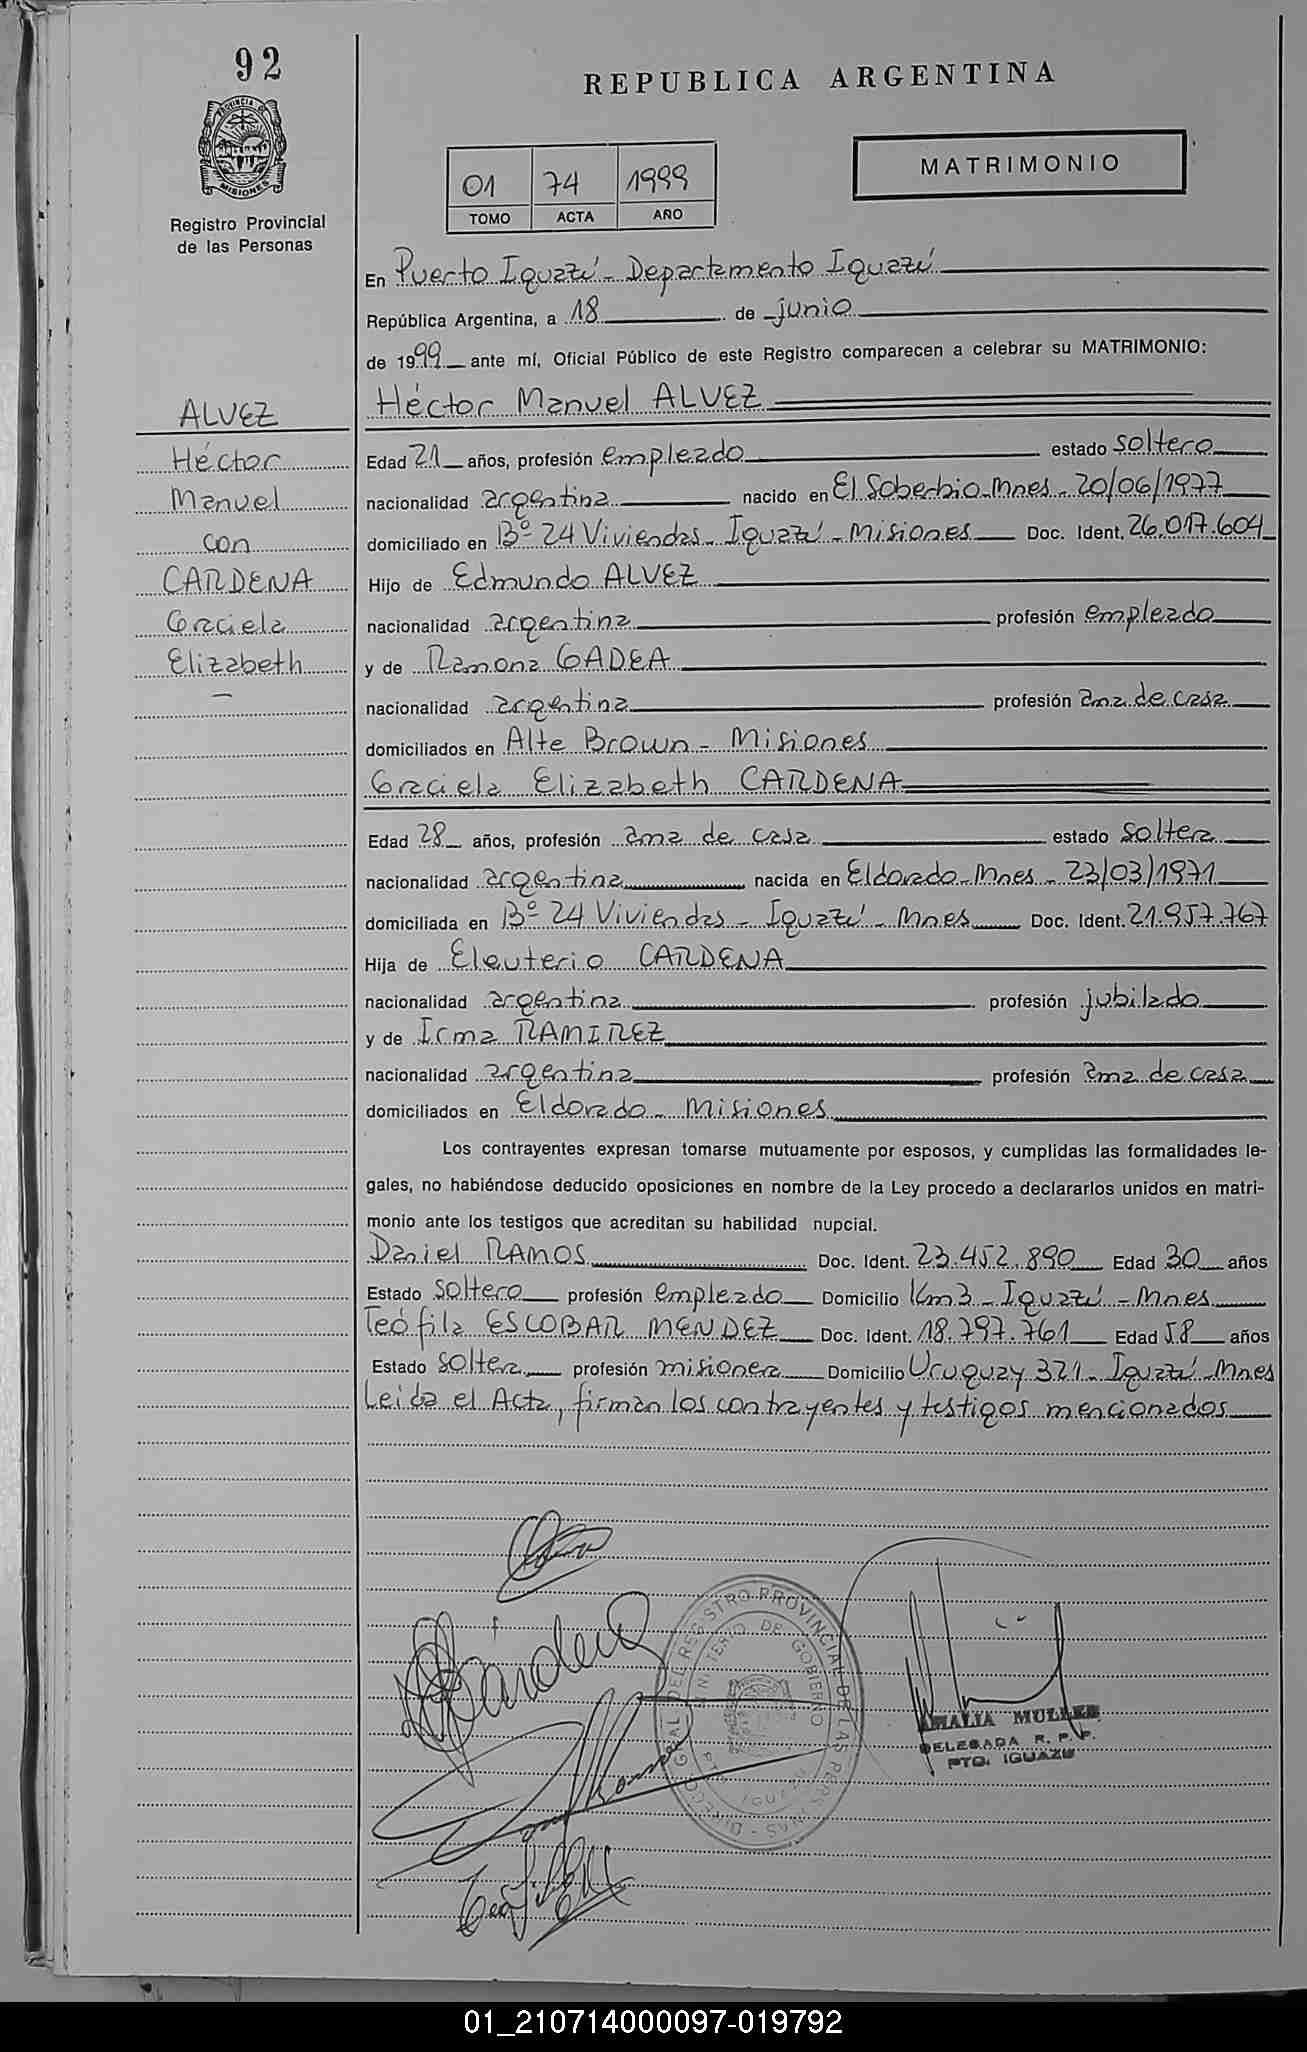 92
REPUBLICA ARGENTINA
PROVINCIA DE
MISIONES
Registro Provincial
de las Personas
01 74 1999
TOMO ACTA AÑO
MATRIMONIO
En Puerto Iguazú - Departamento Iguazú
República Argentina, a 18 de junio
de 1999 ante mí, Oficial Público de este Registro comparecen a celebrar su MATRIMONIO:
ALVEZ
Héctor
Manuel
con
CARDENA
Graciela
Elizabeth
Héctor Manuel ALVEZ
Edad 21 años, profesión empleado estado soltero
nacionalidad argentina nacido en El Soberbio-Mnes - 20/06/1977
domiciliado en Bº 24 Viviendas - Iguazú - Misiones Doc. Ident. 26.017.604
Hijo de Edmundo ALVEZ
nacionalidad argentina profesión empleado
y de Ramona GADEA
nacionalidad argentina profesión ama de casa
domiciliados en Alte Brown - Misiones
Graciela Elizabeth CARDENA
Edad 28 años, profesión ama de casa estado soltera
nacionalidad argentina nacida en Eldorado-Mnes - 23/03/1971
domiciliada en Bº 24 Viviendas - Iguazú - Mnes Doc. Ident. 21.957.767
Hija de Eleuterio CARDENA
nacionalidad argentina profesión jubilado
y de Irma RAMIREZ
nacionalidad argentina profesión ama de casa
domiciliados en Eldorado - Misiones
Los contrayentes expresan tomarse mutuamente por esposos, y cumplidas las formalidades le-
gales, no habiéndose deducido oposiciones en nombre de la Ley procedo a declararlos unidos en matri-
monio ante los testigos que acreditan su habilidad nupcial.
Daniel RAMOS Doc. Ident. 23.452.890 Edad 30 años
Estado soltero profesión empleado Domicilio Km3 - Iguazú - Mnes
Teófila ESCOBAR MENDEZ Doc. Ident. 18.797.761 Edad 58 años
Estado soltera profesión misionera Domicilio Uruguay 321 - Iguazú - Mnes
Leida el Acta, firman los contrayentes y testigos mencionados
DEL REGISTRO PROVINCIAL DE LAS PERSONAS
MINISTERIO DE GOBIERNO
AMALIA MULLER
DELEGADA R. P. P.
PTO. IGUAZU
01_210714000097-019792